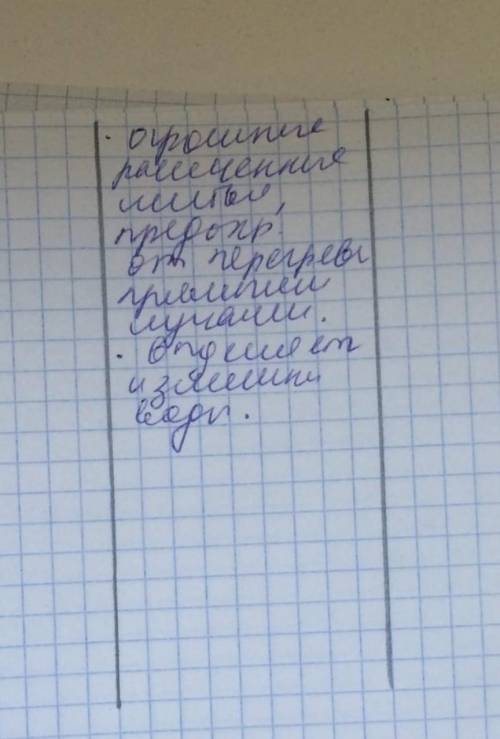 · огромные
рассеченные
листья,
предохр.
от перегрева
прямыми
лучами.
· отделяет
излишки
воды.